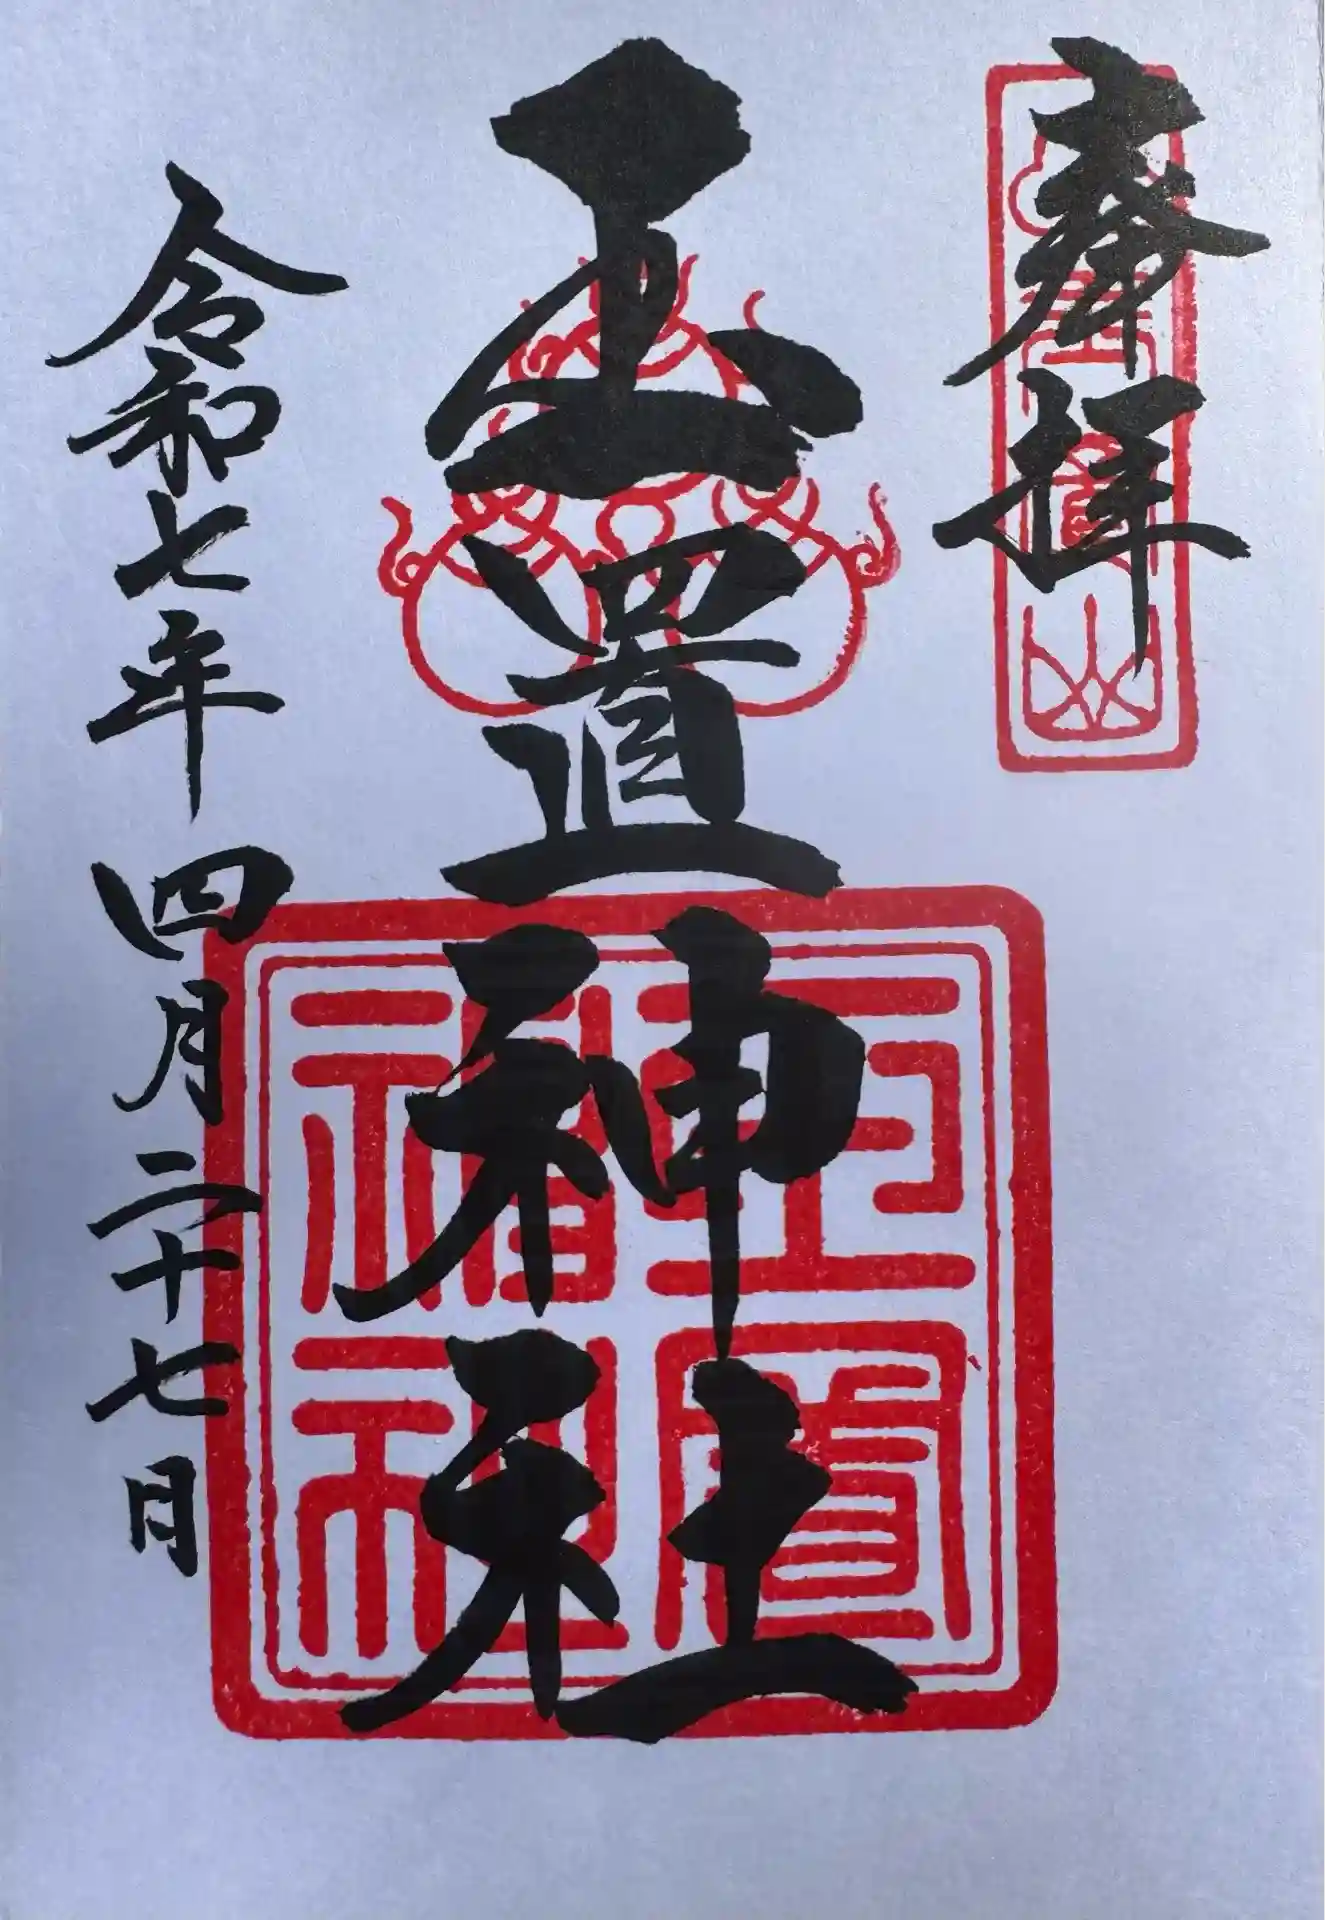 奉拝
玉置山
玉置神社
玉置神社
令和七年四月二十七日